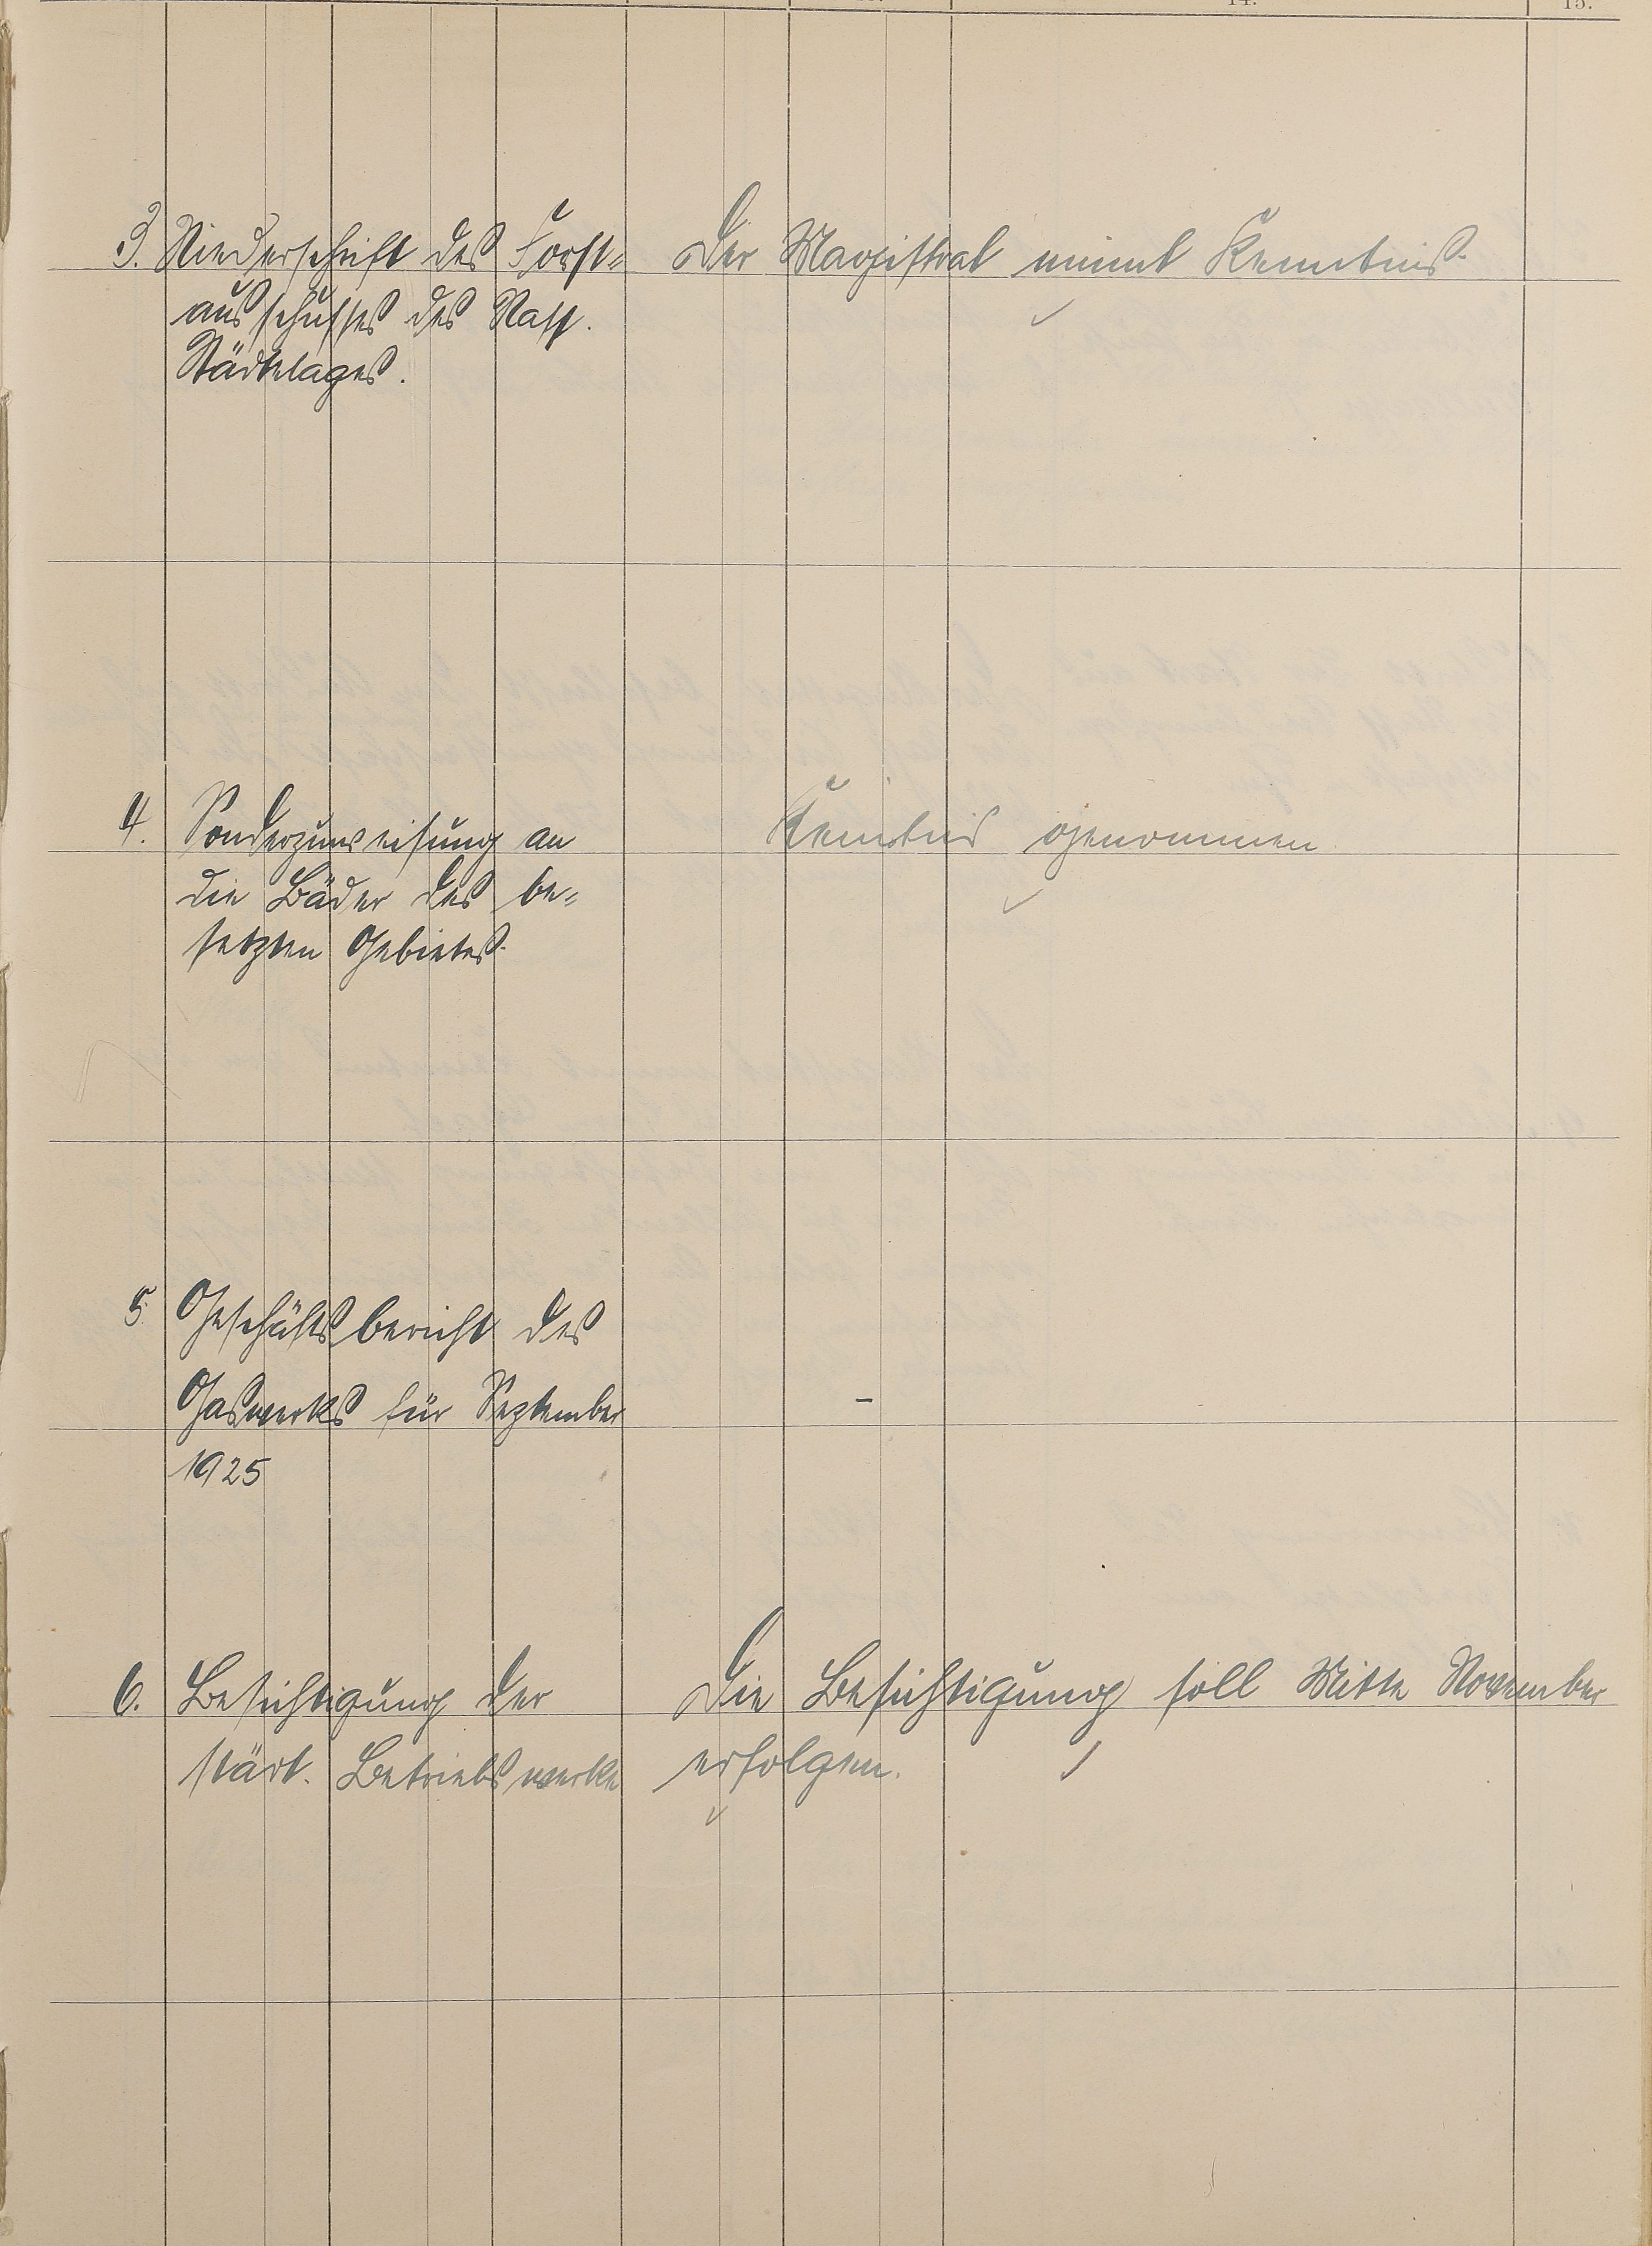 14. 15.
3. Niederschrift des Forst= Der Magistrat nimmt Kenntnis.
ausschusses des Nass.
Städtetages.
4. Sonderzuweisung an Kenntnis genommen
die Bäder des be=
setzten Gebietes.
5. Geschäftsbericht des
Gaswerks für September –
1925
6. Besichtigung der Die Besichtigung soll Mitte November
städt. Betriebswerke erfolgen.